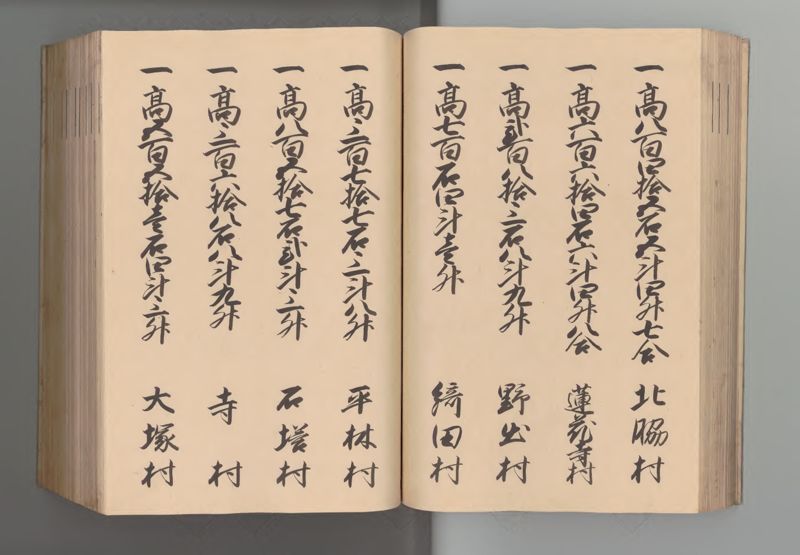 一高八百四拾五石五斗四升七合 北脇村
一高六百六拾四石六斗四升八合 蓮花寺村
一高弐百八拾三石八斗九升 野出村
一高七百石四斗壱升 綺田村
一高三百七拾七石三斗八升 平林村
一高八百五拾七石弐斗三升 石塔村
一高三百六拾八石八斗九升 寺村
一高五百五拾壱石四斗三升 大塚村